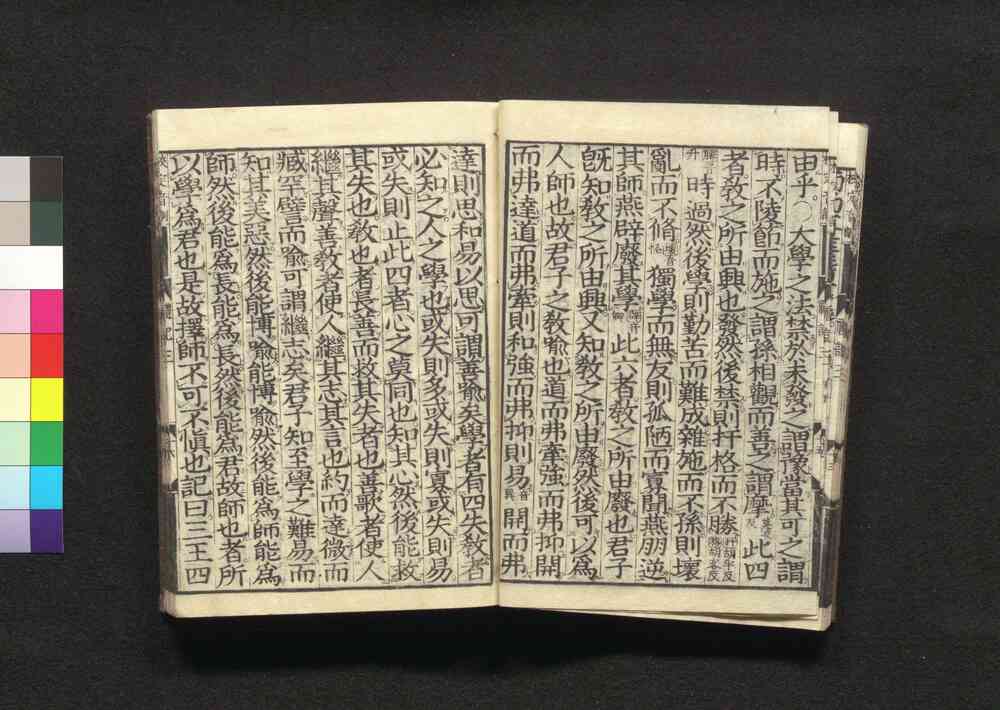 由乎。〇大學之法禁於未發之謂豫當其可之謂
時不陵節而施之謂孫相觀而善之謂摩此四
者教之所由興也發然後禁則扞格而不勝扞胡半反
時過然後學則勤苦而難成雜施而不孫則壞
亂而不脩獨學而無友則孤陋而寡聞燕朋逆
其師燕辟廢其學此六者教之所由廢也君子
旣知教之所由興又知教之所由廢然後可以爲
人師也故君子之教喩也道而弗牽強而弗抑開
而弗達道而弗牽則和強而弗抑則易音異開而弗
達則思和易以思可謂善喩矣學者有四失教者
必知之人之學也或失則多或失則寡或失則易
或失則止此四者心之莫同也知其心然後能救
其失也教也者長善而救其失者也善歌者使人
繼其聲善教者使人繼其志其言也約而達微而
臧罕譬而喩可謂繼志矣君子知至學之難易而
知其美惡然後能博喩能博喩然後能爲師能爲
師然後能爲長能爲長然後能爲君故師也者所
以學爲君也是故擇師不可不愼也記曰三王四